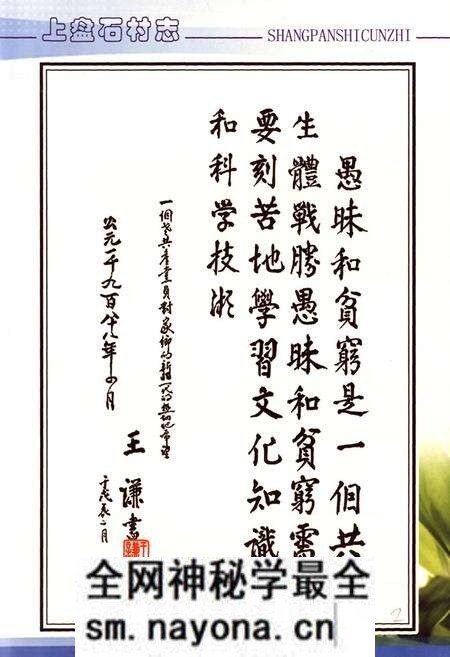 上盘石村志
SHANGPANSHICUNZHI
愚昧和貧窮是一個共
生體戰勝愚昧和貧窮需
要刻苦地學習文化知識
和科学技術
一個老共產黨員對家鄉的
希望
公元一千九百八十八年四月
王謙書
全网神秘学最全
sm.nayona.cn
2